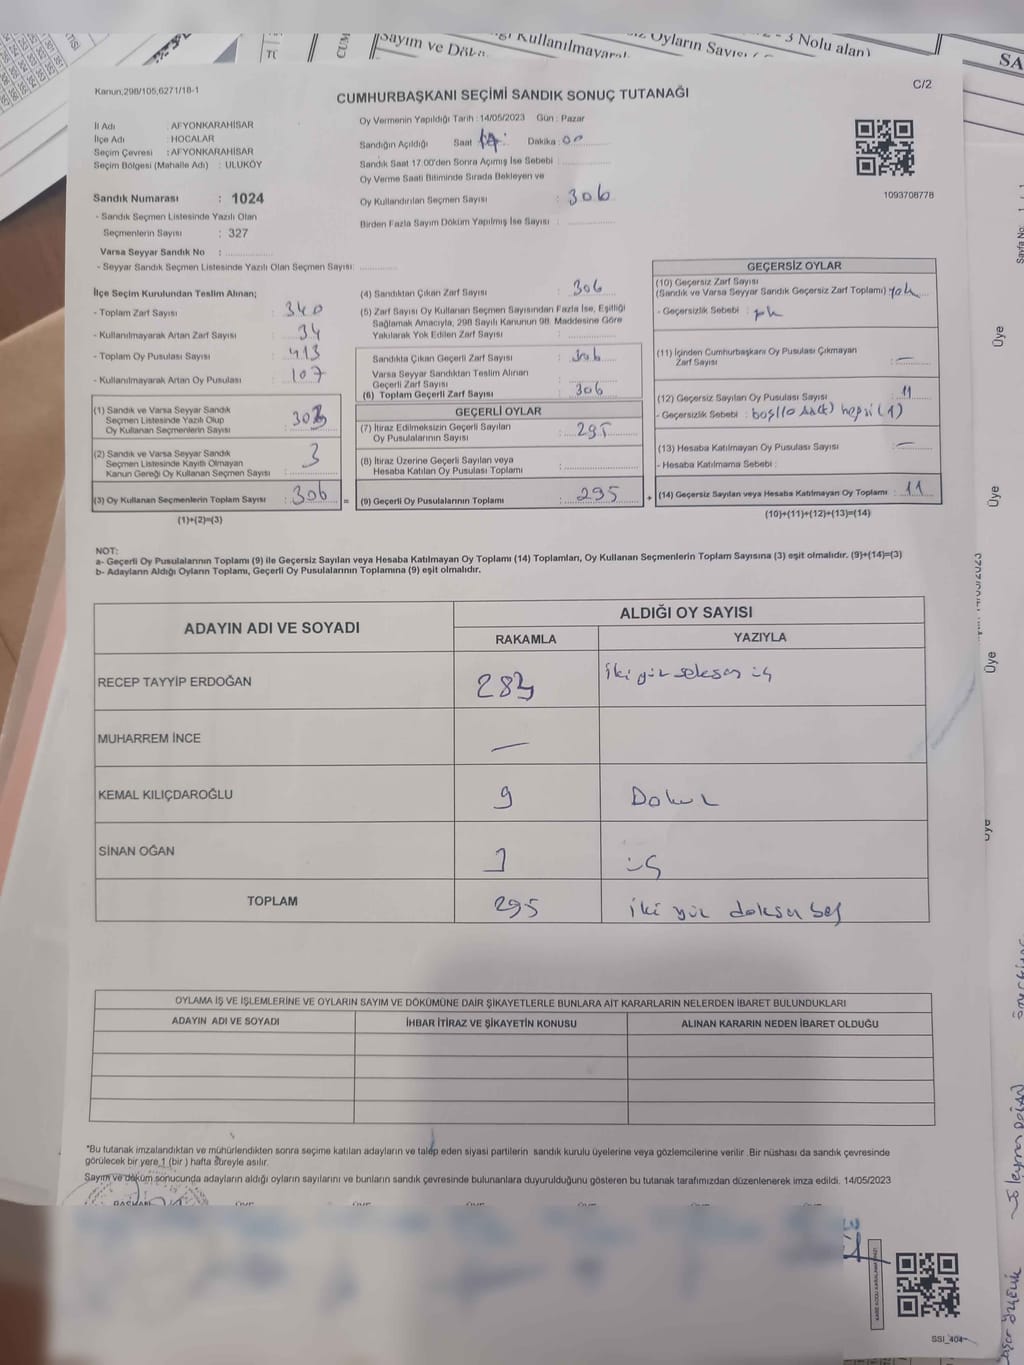 Sayım ve Dök
Kullanılmayarak
Oyların Sayısı
3 Nolu alan)
Kanun,298/105,6271/18-1
C/2
CUMHURBAŞKANI SEÇİMİ SANDIK SONUÇ TUTANAĞI
İl Adı : AFYONKARAHİSAR
İlçe Adı : HOCALAR
Seçim Çevresi : AFYONKARAHİSAR
Seçim Bölgesi (Mahalle Adı) : ULUKÖY
Oy Vermenin Yapıldığı Tarih : 14/05/2023 Gün : Pazar
Sandığın Açıldığı Saat Dakika : 00
Sandık Saat 17.00'den Sonra Açımış İse Sebebi :
Oy Verme Saati Bitiminde Sırada Bekleyen ve
Oy Kullandırılan Seçmen Sayısı : 306
Birden Fazla Sayım Döküm Yapılmış İse Sayısı :
1093708778
Sandık Numarası : 1024
- Sandık Seçmen Listesinde Yazılı Olan
Seçmenlerin Sayısı : 327
Varsa Seyyar Sandık No :
- Seyyar Sandık Seçmen Listesinde Yazılı Olan Seçmen Sayısı:
İlçe Seçim Kurulundan Teslim Alınan;
- Toplam Zarf Sayısı : 340
- Kullanılmayarak Artan Zarf Sayısı : 34
- Toplam Oy Pusulası Sayısı : 413
- Kullanılmayarak Artan Oy Pusulası : 107
(1) Sandık ve Varsa Seyyar Sandık
Seçmen Listesinde Yazılı Olup
Oy Kullanan Seçmenlerin Sayısı : 303
(2) Sandık ve Varsa Seyyar Sandık
Seçmen Listesinde Kayıtlı Olmayan
Kanun Gereği Oy Kullanan Seçmen Sayısı : 3
(3) Oy Kullanan Seçmenlerin Toplam Sayısı : 306
(1)+(2)=(3)
(4) Sandıktan Çıkan Zarf Sayısı : 306
(5) Zarf Sayısı Oy Kullanan Seçmen Sayısından Fazla İse, Eşitliği
Sağlamak Amacıyla, 298 Sayılı Kanunun 98. Maddesine Göre
Yakılarak Yok Edilen Zarf Sayısı :
Sandıkta Çıkan Geçerli Zarf Sayısı : 306
Varsa Seyyar Sandıktan Teslim Alınan
Geçerli Zarf Sayısı :
(6) Toplam Geçerli Zarf Sayısı : 306
GEÇERLİ OYLAR
(7) İtiraz Edilmeksizin Geçerli Sayılan
Oy Pusulalarının Sayısı : 295
(8) İtiraz Üzerine Geçerli Sayılan veya
Hesaba Katılan Oy Pusulası Toplamı :
= (9) Geçerli Oy Pusulalarının Toplamı : 295
GEÇERSİZ OYLAR
(10) Geçersiz Zarf Sayısı
(Sandık ve Varsa Seyyar Sandık Geçersiz Zarf Toplamı) yok
- Geçersizlik Sebebi :
(11) İçinden Cumhurbaşkanı Oy Pusulası Çıkmayan
Zarf Sayısı : —
(12) Geçersiz Sayılan Oy Pusulası Sayısı : 11
- Geçersizlik Sebebi : hepsi (1)
(13) Hesaba Katılmayan Oy Pusulası Sayısı : —
- Hesaba Katılmama Sebebi :
+ (14) Geçersiz Sayılan veya Hesaba Katılmayan Oy Toplamı : 11
(10)+(11)+(12)+(13)=(14)
NOT:
a- Geçerli Oy Pusulalarının Toplamı (9) ile Geçersiz Sayılan veya Hesaba Katılmayan Oy Toplamı (14) Toplamları, Oy Kullanan Seçmenlerin Toplam Sayısına (3) eşit olmalıdır. (9)+(14)=(3)
b- Adayların Aldığı Oyların Toplamı, Geçerli Oy Pusulalarının Toplamına (9) eşit olmalıdır.
ADAYIN ADI VE SOYADI
ALDIĞI OY SAYISI
RAKAMLA YAZIYLA
RECEP TAYYİP ERDOĞAN 283 iki yüz seksen üç
MUHARREM İNCE —
KEMAL KILIÇDAROĞLU 9 Dokuz
SİNAN OĞAN üç
TOPLAM 295 iki yüz doksan beş
OYLAMA İŞ VE İŞLEMLERİNE VE OYLARIN SAYIM VE DÖKÜMÜNE DAİR ŞİKAYETLERLE BUNLARA AİT KARARLARIN NELERDEN İBARET BULUNDUKLARI
ADAYIN ADI VE SOYADI İHBAR İTİRAZ VE ŞİKAYETİN KONUSU ALINAN KARARIN NEDEN İBARET OLDUĞU
"Bu tutanak imzalandıktan ve mühürlendikten sonra seçime katılan adayların ve talep eden siyasi partilerin sandık kurulu üyelerine veya gözlemcilerine verilir .Bir nüshası da sandık çevresinde
görülecek bir yere 1 (bir ) hafta süreyle asılır.
Sayım ve döküm sonucunda adayların aldığı oyların sayılarını ve bunların sandık çevresinde bulunanlara duyurulduğunu gösteren bu tutanak tarafımızdan düzenlenerek imza edildi. 14/05/2023
BAŞKAN ÜYE ÜYE ÜYE ÜYE ÜYE ÜYE
SSİ_404
Sayfa No:
Üye
Üye
Üye
Üye